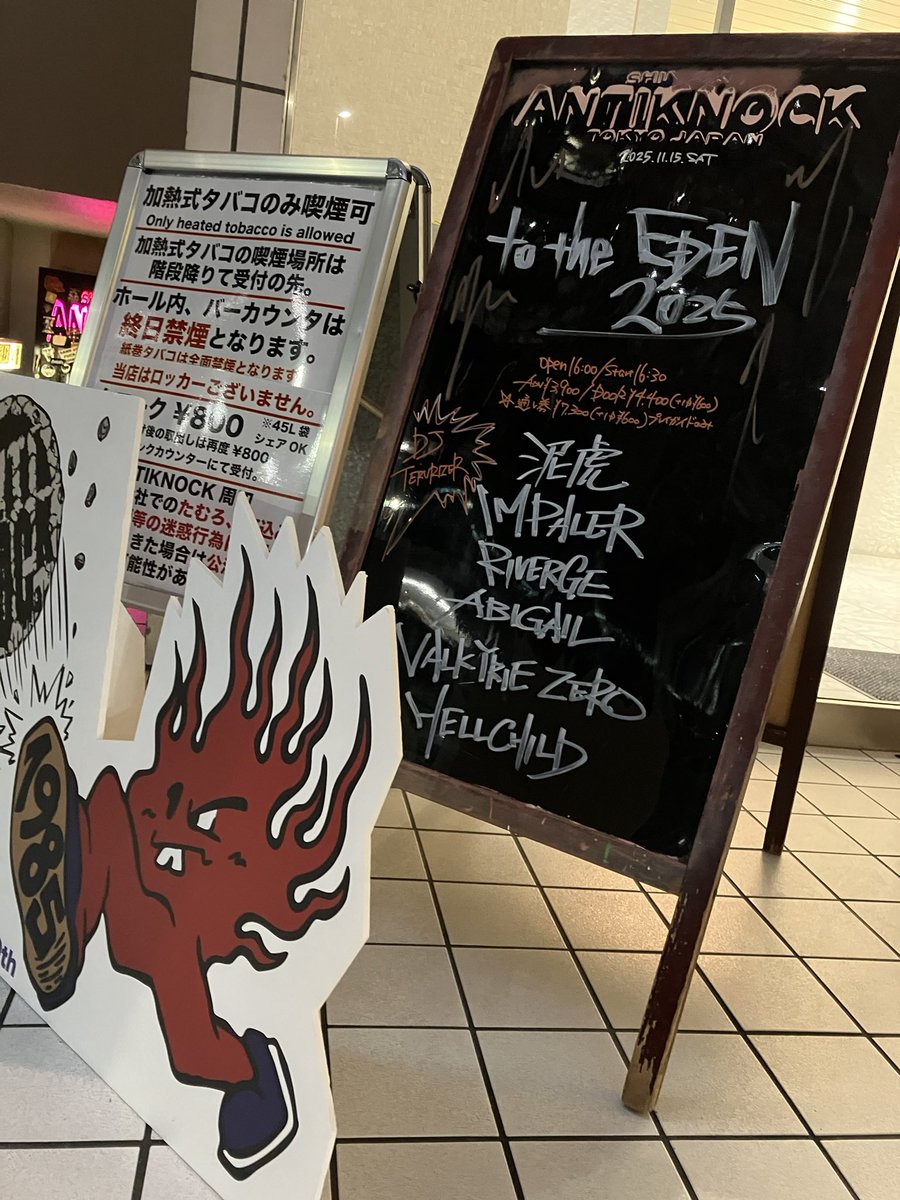 加熱式タバコのみ喫煙可
Only heated tobacco is allowed
加熱式タバコの喫煙場所は
階段降りて受付の先。
ホール内、バーカウンタは
終日禁煙となります。
紙巻タバコは全面禁煙となります
当店はロッカーございません。
ク ¥800 ※45L袋
シェアOK
後の取出しは再度¥800
ックカウンターにて受付。
TIKNOCK 周
社でのたむろ、
等の迷惑行為
きた場合は公
可能性があ
1985
th
SHIN
ANTIKNOCK
TOKYO JAPAN
2025.11.15.SAT
to the EDEN
2025
open 16:00/Start 16:30
Adv ¥3,900/Door ¥4,400(+1D¥600)
☆通し券¥7,300(+1D¥600)プレイガイドのみ
DJ
TERURIZER
泥虎
IMPALER
RIVERGE
ABIGAIL
VALKYRIE ZERO
HELLCHILD